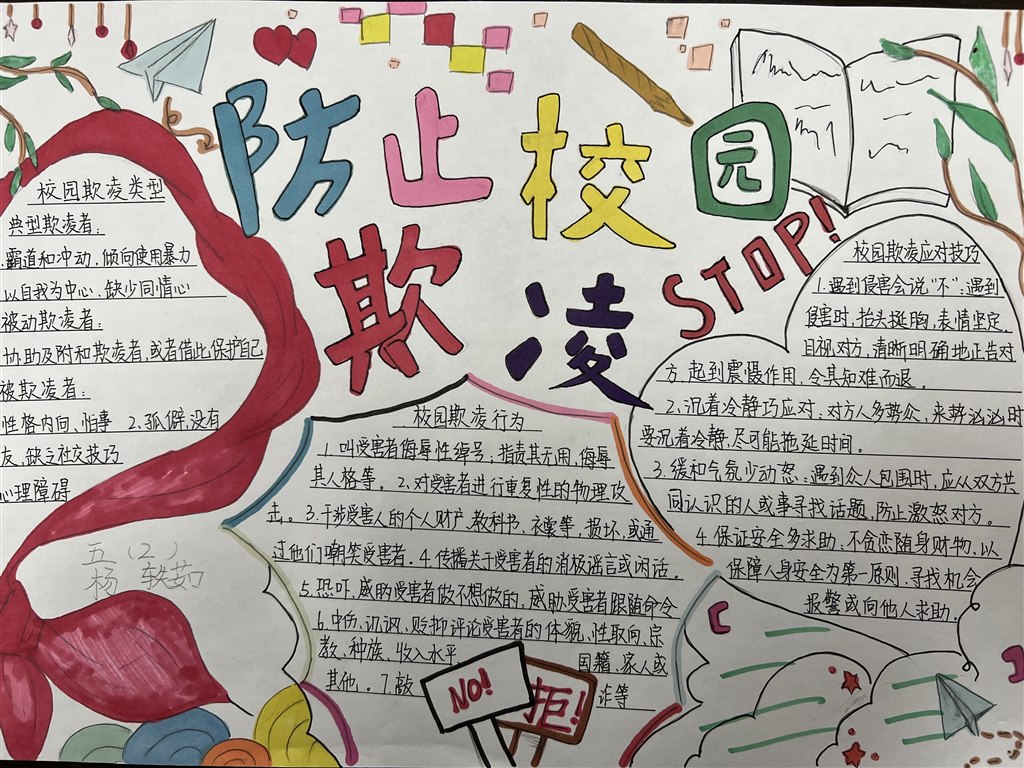 防止校园
欺凌
STOP!
校园欺凌类型
典型欺凌者:
霸道和冲动,倾向使用暴力
以自我为中心、缺少同情心
被动欺凌者:
协助及附和欺凌者,或者借此保护自己
被欺凌者:
性格内向、怕事 2.孤僻、没有
友、缺乏社交技巧
心理障碍
五(2)
杨
校园欺凌行为
1.叫受害者侮辱性绰号;指责其无用、侮辱
其人格等。2.对受害者进行重复性的物理攻
击。3.干涉受害人的个人财产、教科书、衣裳等,损坏、或通
过他们嘲笑受害者.4.传播关于受害者的消极谣言或闲话。
5.恐吓、威胁受害者做不想做的,威胁受害者跟随命令
6.中伤、讥讽、贬抑评论受害者的体貌、性取向、宗
教、种族、收入水平 国籍、家人或
其他。7.敲 诈等
NO!
拒!
校园欺凌应对技巧
1.遇到侵害会说“不”:遇到
侵害时,抬头挺胸,表情坚定,
目视对方,清晰明确地正告对
方,起到震慑作用,令其知难而退。
2.沉着冷静巧应对:对方人多势众,来势汹汹时
要沉着冷静,尽可能拖延时间。
3.缓和气氛少动怒:遇到众人包围时,应从双方共
同认识的人或事寻找话题,防止激怒对方。
4.保证安全多求助:不贪恋随身财物,以
保障人身安全为第一原则,寻找机会
报警或向他人求助.